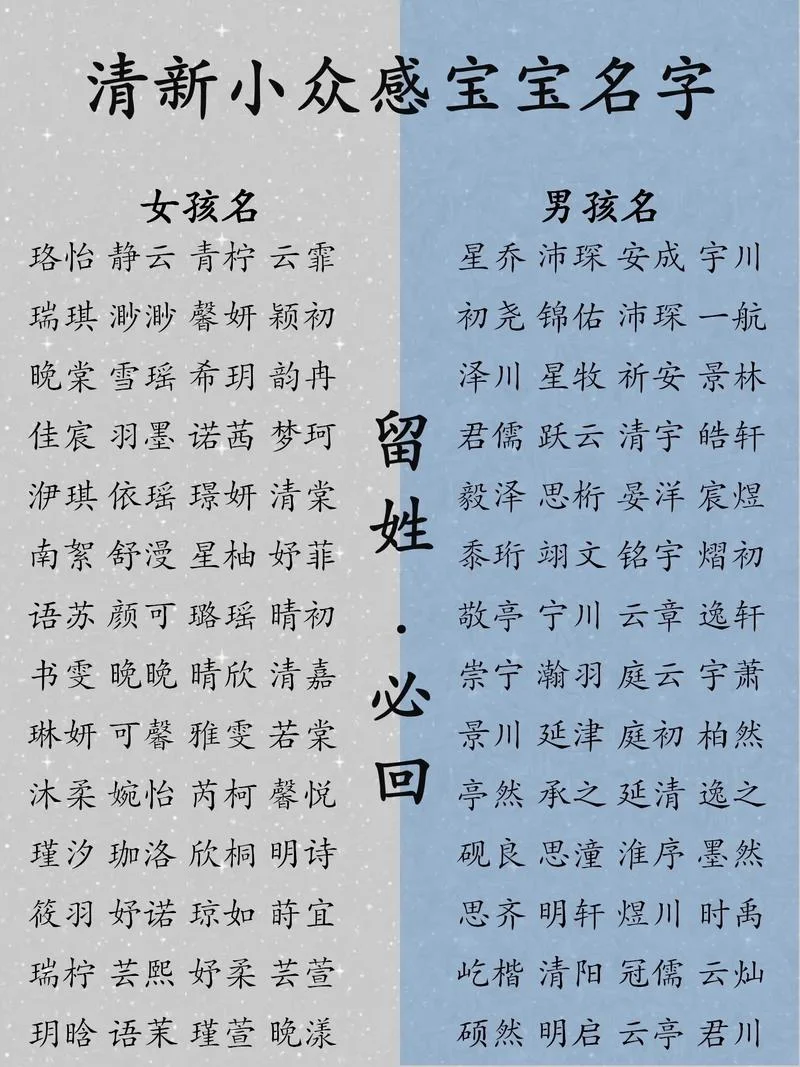 清新小众感宝宝名字
女孩名
珞怡 静云 青柠 云霏
瑞琪 渺渺 馨妍 颖初
晚棠 雪瑶 希玥 韵冉
佳宸 羽墨 诺茜 梦珂
洢琪 依瑶 璟妍 清棠
南絮 舒漫 星柚 妤菲
语苏 颜可 璐瑶 晴初
书雯 晚晚 晴欣 清嘉
琳妍 可馨 雅雯 若棠
沐柔 婉怡 芮柯 馨悦
瑾汐 珈洛 欣桐 明诗
筱羽 妤诺 琼如 莳宜
瑞柠 芸熙 妤柔 芸萱
玥晗 语茉 瑾萱 晚漾
留姓·必回
男孩名
星乔 沛琛 安成 宇川
初尧 锦佑 沛琛 一航
泽川 星牧 祈安 景林
君儒 跃云 清宇 皓轩
毅泽 思桁 晏洋 宸煜
黍珩 翊文 铭宇 熠初
敬亭 宁川 云章 逸轩
崇宁 瀚羽 庭云 宇萧
景川 延津 庭初 柏然
亭然 承之 延清 逸之
砚良 思潼 淮序 墨然
思齐 明轩 煜川 时禹
屹楷 清阳 冠儒 云灿
硕然 明启 云亭 君川